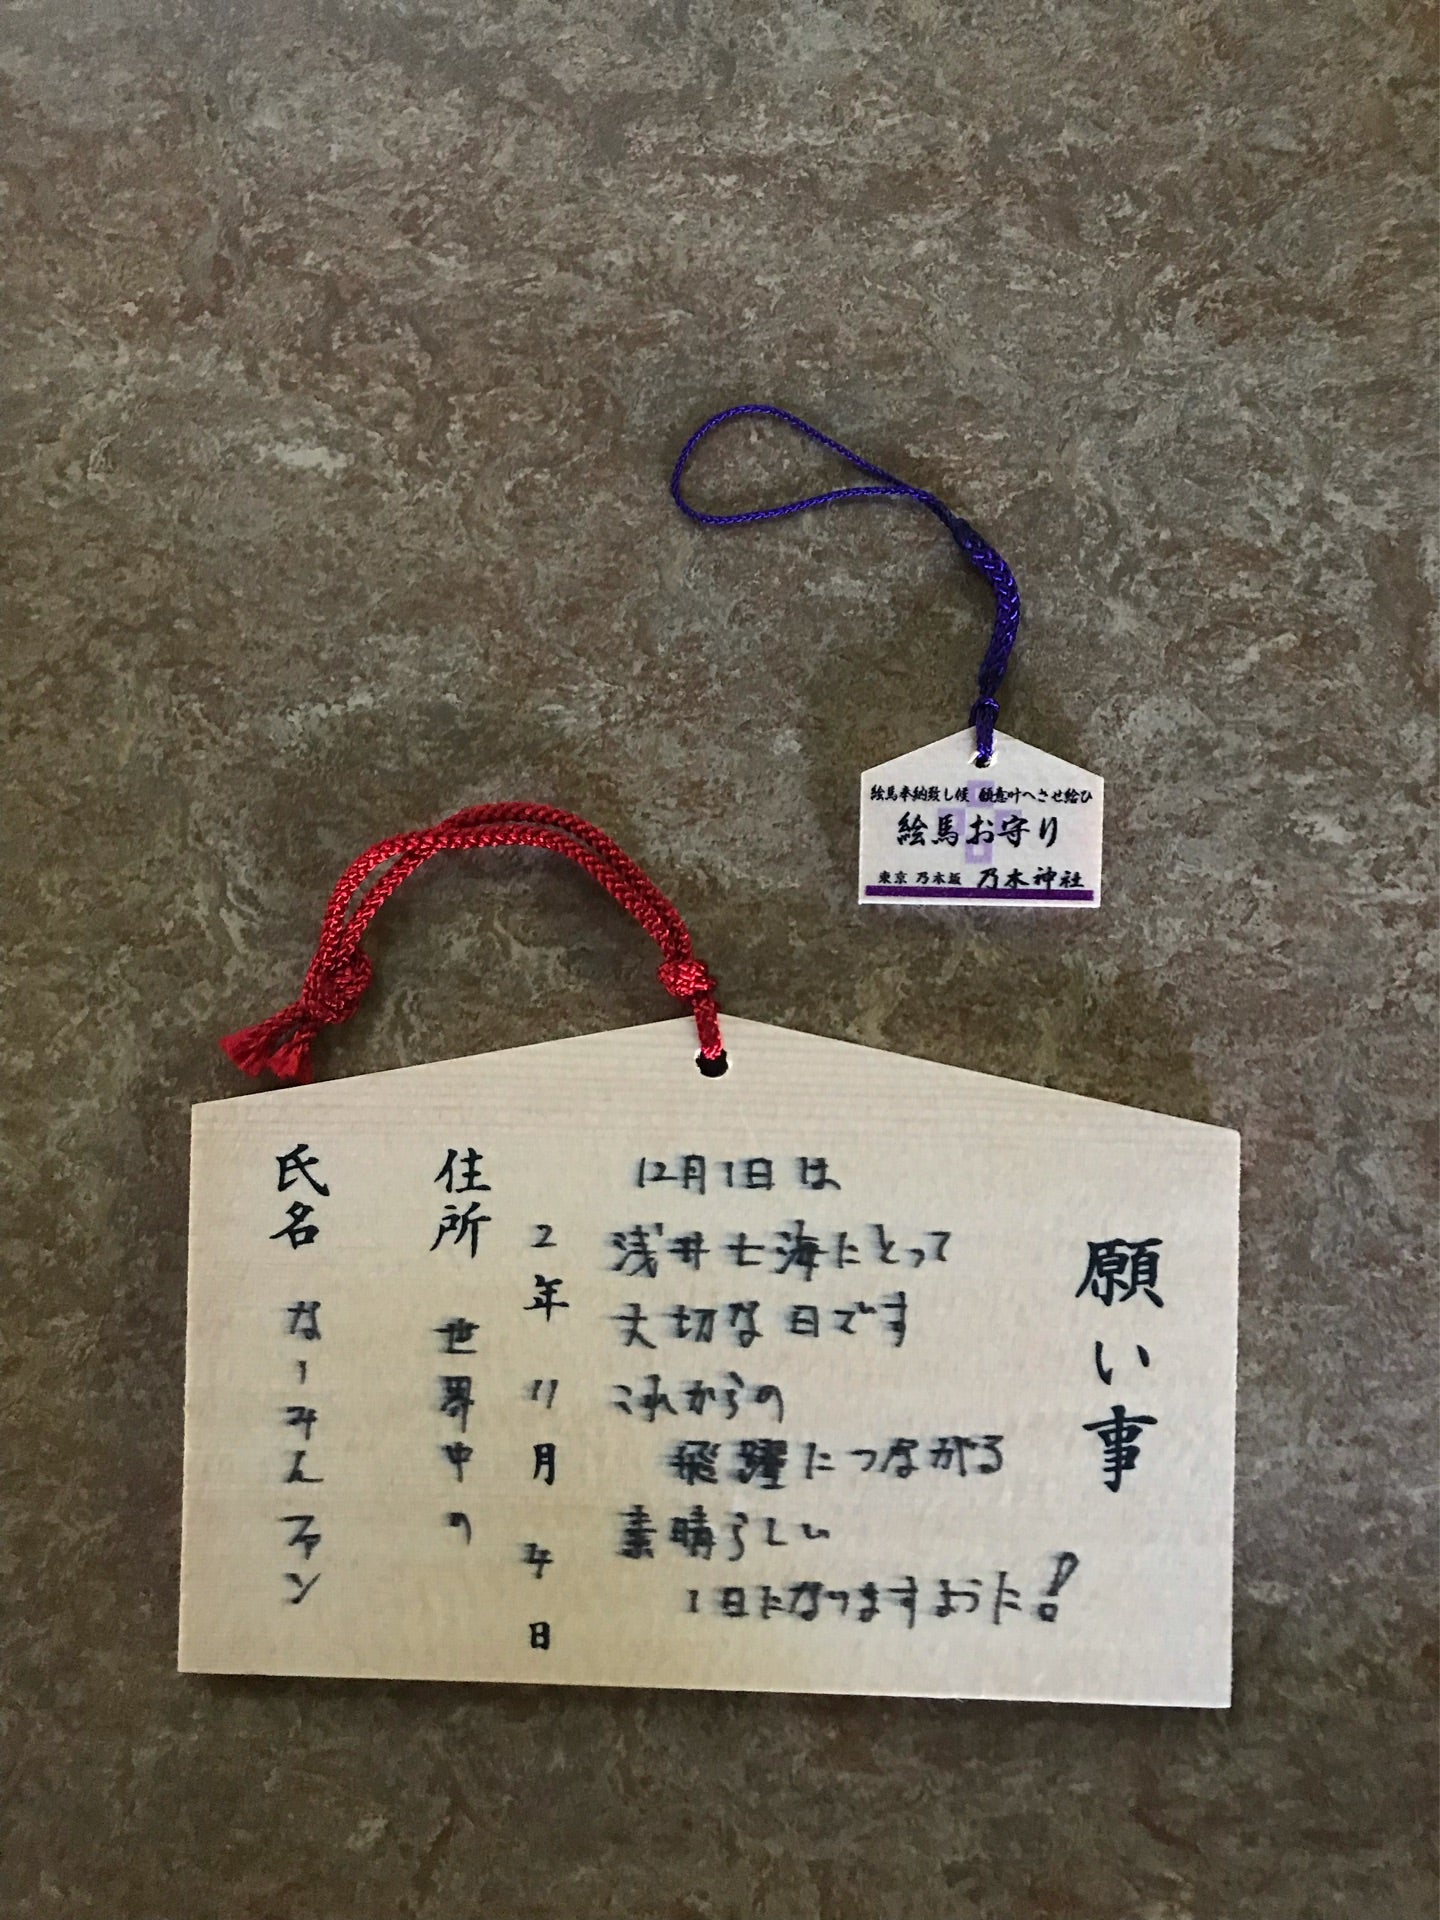 絵馬奉納致し候 願意叶へさせ給ひ
絵馬お守り
東京 乃木坂 乃木神社
願い事
12月1日は
浅井七海にとって
大切な日です
これからの
飛躍につながる
素晴らしい
1日になりますように!
2年11月4日
住所 世界中の
氏名 なーみんファン